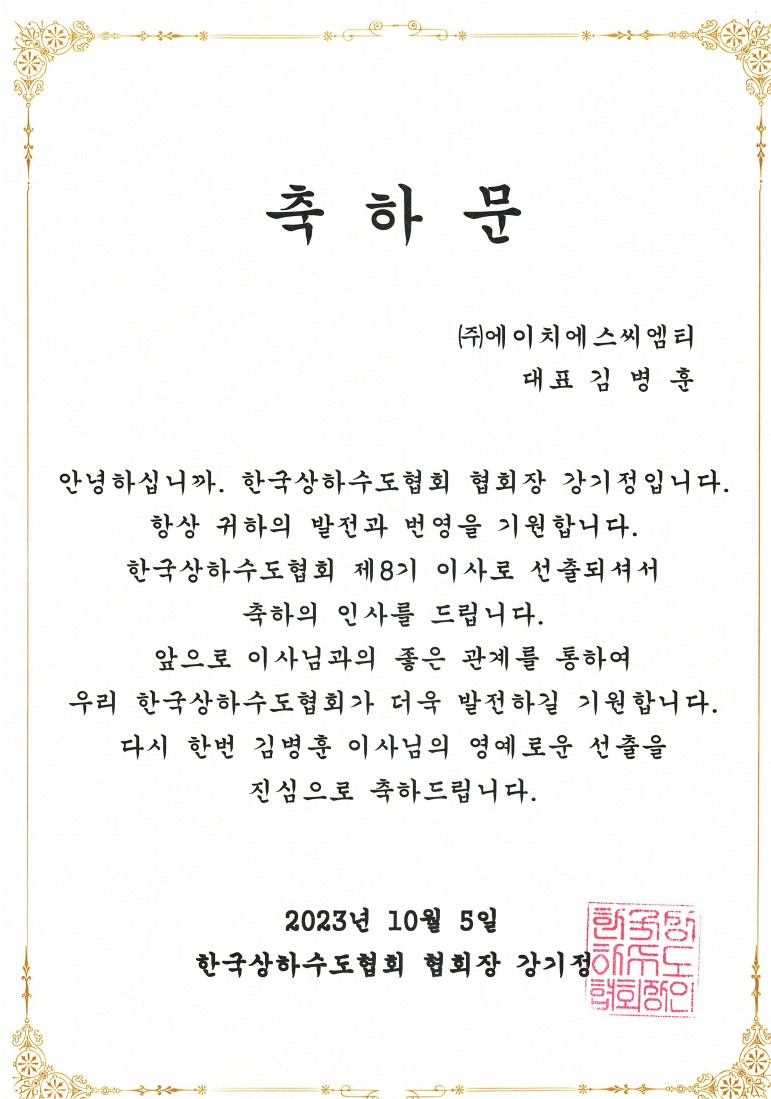 축 하 문
㈜에이치에스씨엠티
대표 김 병 훈
안녕하십니까. 한국상하수도협회 협회장 강기정입니다.
항상 귀하의 발전과 번영을 기원합니다.
한국상하수도협회 제8기 이사로 선출되셔서
축하의 인사를 드립니다.
앞으로 이사님과의 좋은 관계를 통하여
우리 한국상하수도협회가 더욱 발전하길 기원합니다.
다시 한번 김병훈 이사님의 영예로운 선출을
진심으로 축하드립니다.
2023년 10월 5일
한국상하수도협회 협회장 강기정
한국상
하수도
협회장인